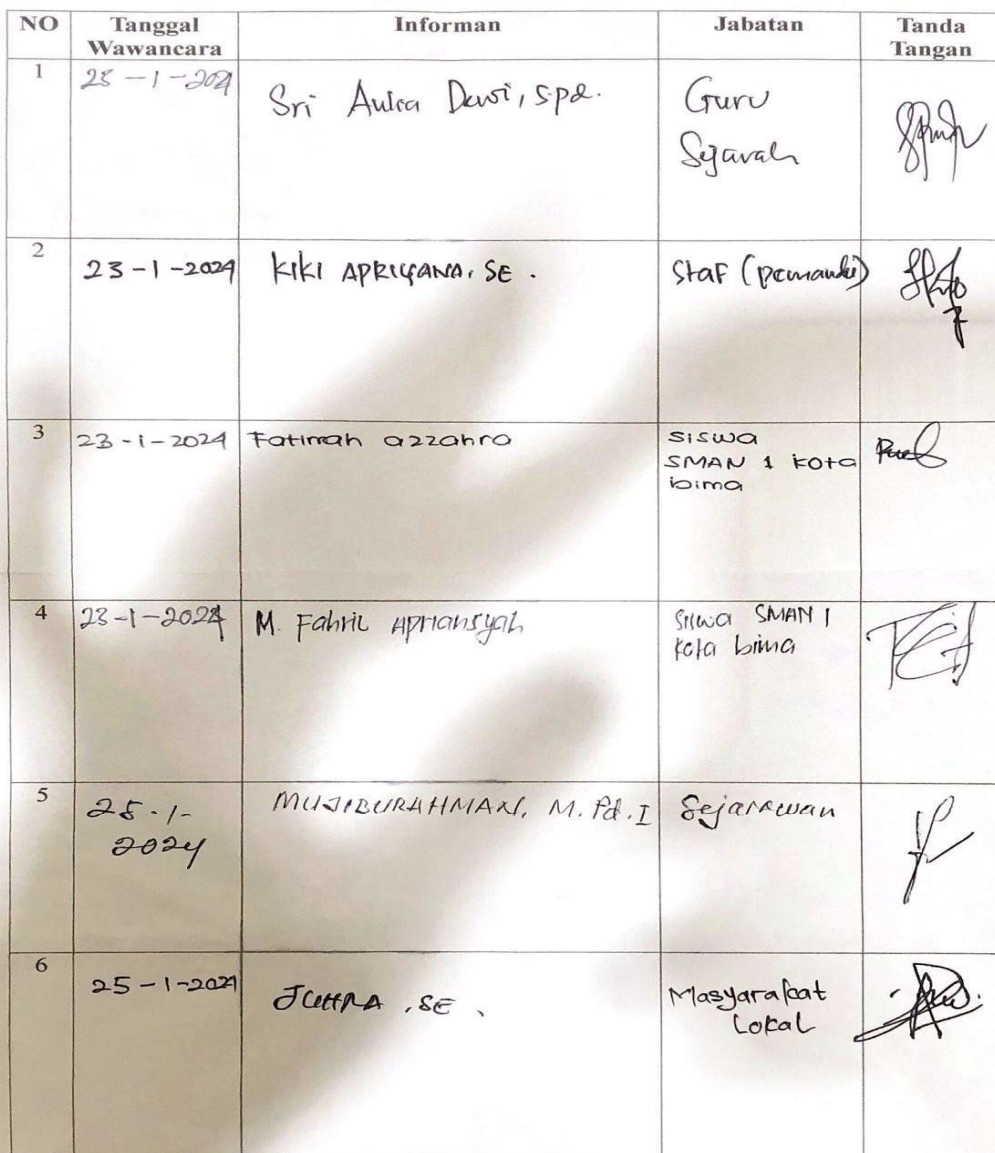 NO Tanggal Wawancara Informan Jabatan Tanda Tangan
1 23-1-2024 Sri Aulia Dewi, S.Pd. Guru
Sejarah
2 23-1-2024 KIKI APRIYANA, SE. Staf (pemandu)
3 23-1-2024 Fatimah azzahra siswa
SMAN 1 kota
bima
4 23-1-2024 M. Fahril Apriansyah Siswa SMAN 1
Kota bima
5 25-1- MUJIBURAHMAN, M.Pd.I Sejarawan
2024
6 25-1-2024 SE. Masyarakat
Lokal